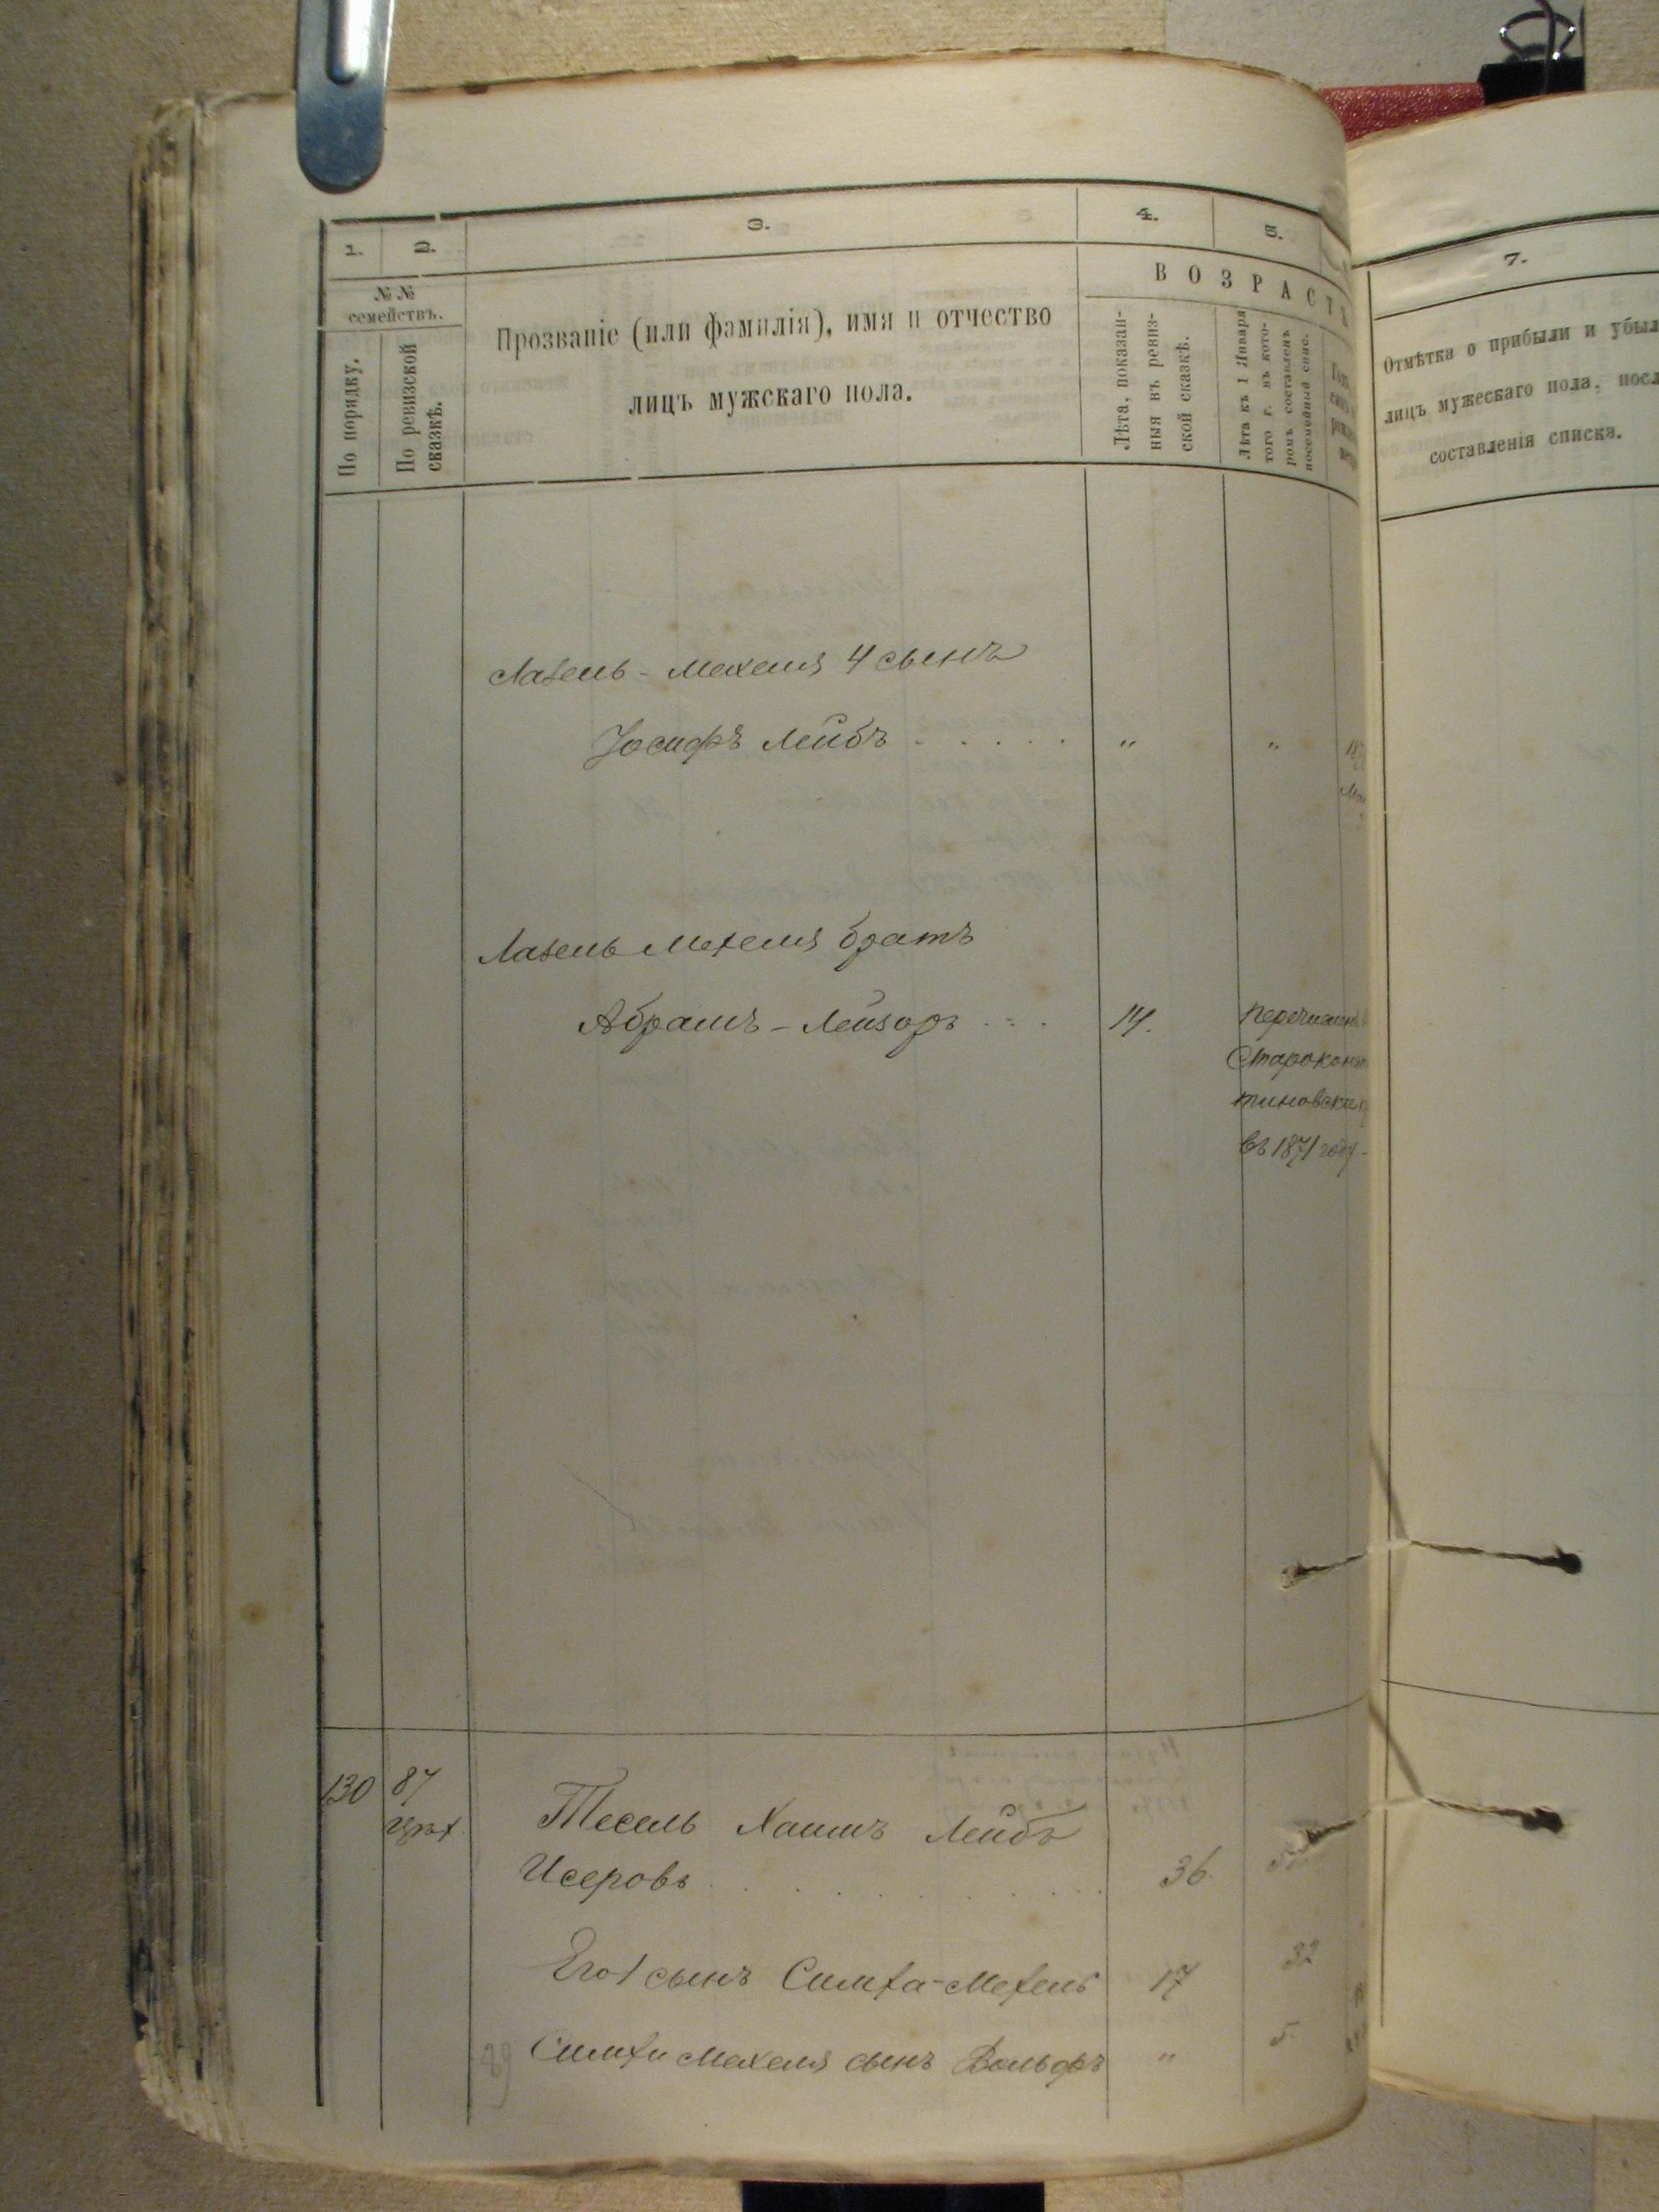 1.
2.
3.
4.
5.
№№
семействъ.
По порядку.
По ревизской
сказкѣ.
Прозваніе (или фамилія), имя и отчество
лицъ мужскаго пола.
ВОЗРАСТЪ
Лѣта, показан-
ныя въ ревиз-
ской сказкѣ.
Лѣта къ 1 Января
того г. въ кото-
ромъ составленъ
посемейный спис.
Лазель-Мехеля 4 сынъ
Іосифъ Лейбъ . . . . . " "
Лазель Мехеля братъ
Абрамъ-Лейзоръ . . . 14.
Перечислен
Старокон
тиновск
въ 1871 году
130 87
Тесель Хаимъ Лейбъ
Исеровъ . . . . . . . . . . 36.
Его 1 сынъ Симха-Мехель 17 32
Симхи Мехеля сынъ Вольфъ " 5.
7.
Отмѣтка о прибыли и убыл
лицъ мужескаго пола, посл
составленія списка.